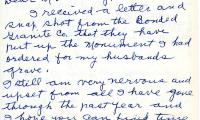 I received a letter and
snap shot from the Bonded
Granite Co. that they have
put up the Monument I had
ordered for my husbands
grave.
I still am very nervous and
upset from all I have gone
through the past year and
I hope you can